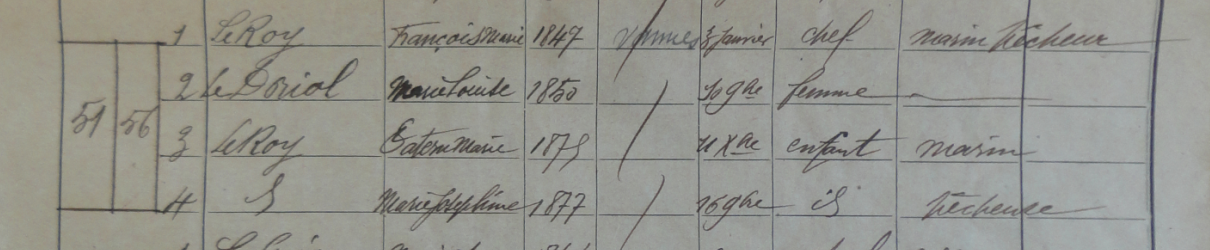 1 LeRoy François Marie 1847 Vannes 3 janvier chef marin Pêcheur
51 56 2 Le Doriol Marie Louise 1850 10 9bre femme
3 LeRoy Marie 1875 11 Xbre enfant marin
4 Marie Joséphine 1877 16 9bre id Pêcheuse